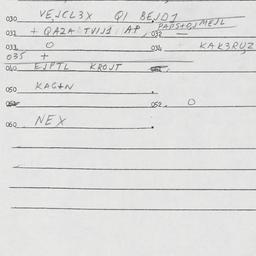 030 VEJCL3X QI BEJD1
031 + QAZA TVIJ1 AP, 032 PAPS+OJMEJL —
033 O 034 KAK3RUZ
035 +
040 EJPTL KROJT
050 KAG+N
052. O
060 NEX